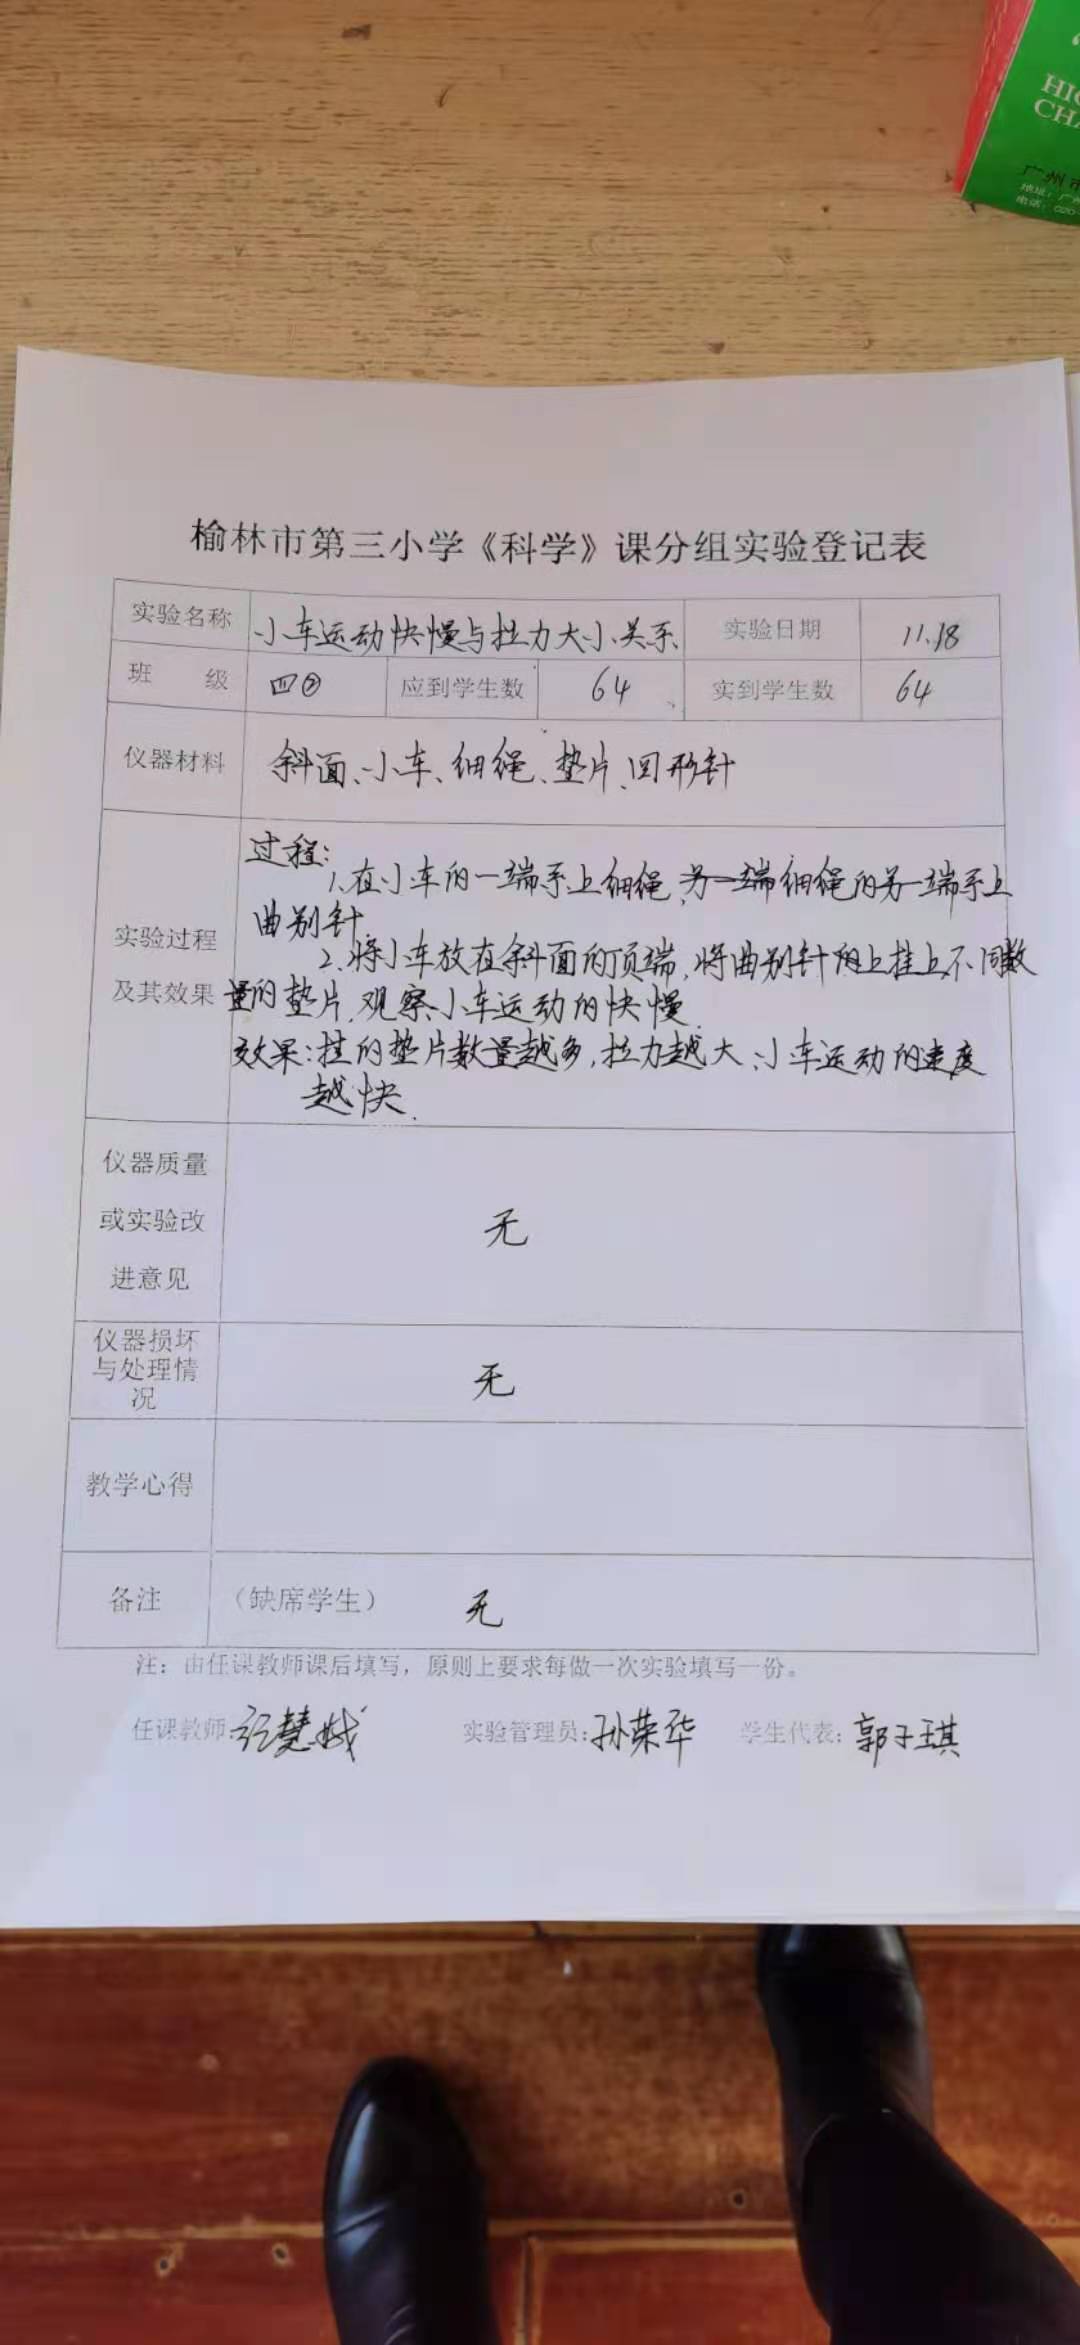 HIG
CHA
广州市
地址：广
电话：020-
榆林市第三小学《科学》课分组实验登记表
实验名称 小车运动快慢与拉力大小关系 实验日期 11.18
班 级 四② 应到学生数 64 实到学生数 64
仪器材料 斜面、小车、细绳、垫片、回形针
过程：
1、在小车的一端系上细绳，细绳的另一端系上
曲别针
实验过程
2、将小车放在斜面的顶端，将曲别针上挂上不同数
及其效果
量的垫片，观察小车运动的快慢
效果：挂的垫片数量越多，拉力越大、小车运动的速度
越快.
仪器质量
或实验改
进意见
无
仪器损坏
与处理情
况
无
教学心得
备注 （缺席学生） 无
注：由任课教师课后填写，原则上要求每做一次实验填写一份。
任课教师： 实验管理员：孙荣华 学生代表：郭子琪